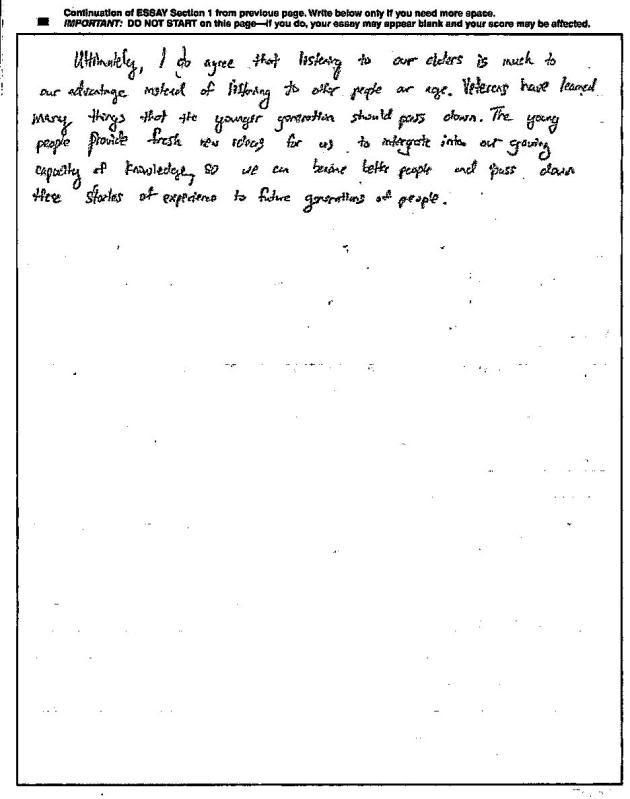 Continuation of ESSAY Section 1 from previous page. Write below only if you need more space.
IMPORTANT: DO NOT START on this page—if you do, your essay may appear blank and your score may be affected.
Ultimately, I do agree that listening to our elders is much to
our advantage instead of listening to other people our age. Veterens have learned
many things that the younger generation should pass down. The young
people provide fresh new ideas for us to intergate into our growing
capacity of knowledge, so we can become better people and pass down
these stories of experience to future generations of people.